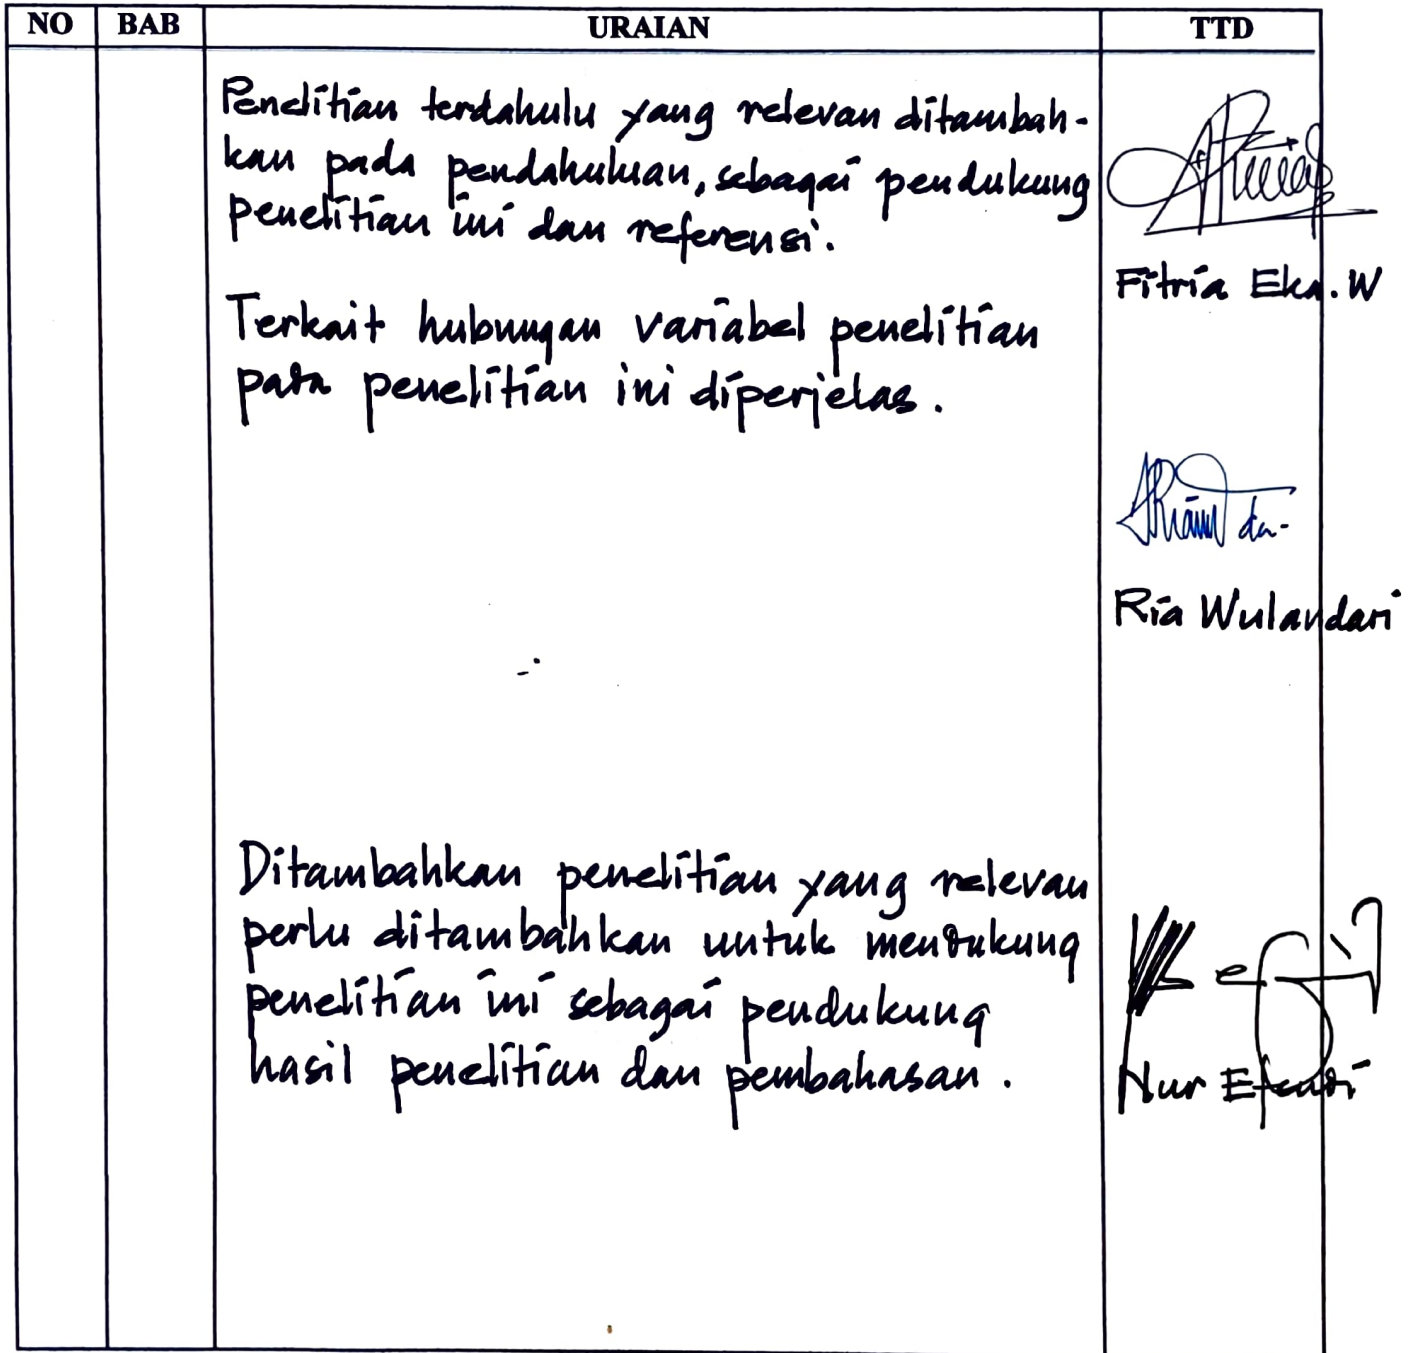 NO BAB URAIAN TTD
Penelitian terdahulu yang relevan ditambah-
kan pada pendahuluan, sebagai pendukung
penelitian ini dan referensi.
Fitria Eka. W
Terkait hubungan variabel penelitian
pada penelitian ini diperjelas.
Ria Wulandari
Ditambahkan penelitian yang relevan
perlu ditambahkan untuk mendukung
penelitian ini sebagai pendukung
hasil penelitian dan pembahasan.
Nur Efendi